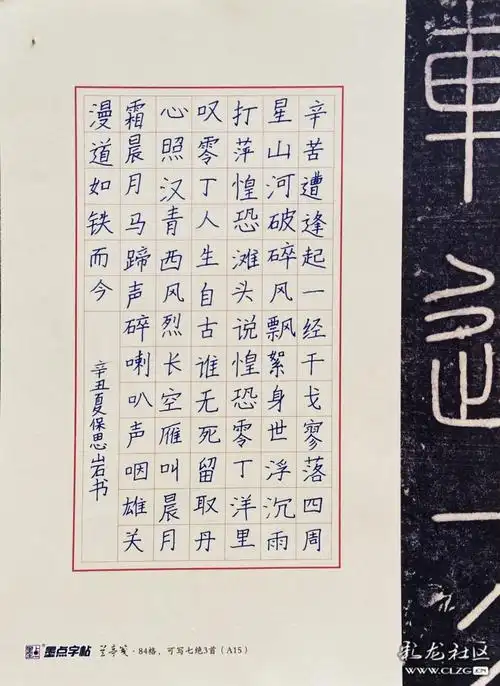 辛苦遭逢起一经干戈寥落四周
星山河破碎风飘絮身世浮沉雨
打萍惶恐滩头说惶恐零丁洋里
叹零丁人生自古谁无死留取丹
心照汉青西风烈长空雁叫晨月
霜晨月马蹄声碎喇叭声咽雄关
漫道如铁而今
辛丑夏保思岩书
墨点字帖 兰亭笺·84格，可写七绝3首（A15）
彩龙社区
WWW.CLZG.CN